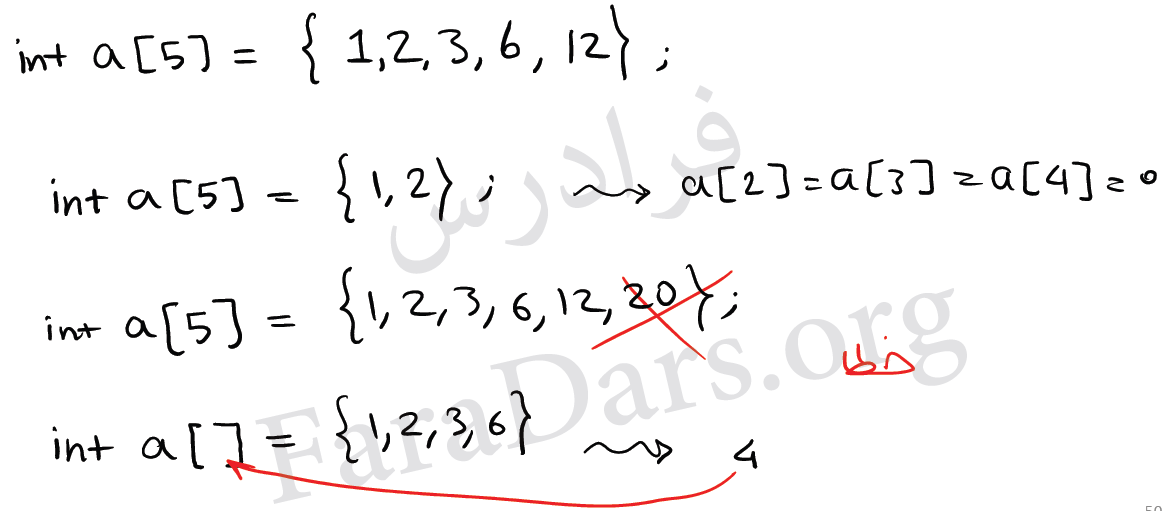 int a[5] = { 1,2,3,6,12} ;
int a[5] = {1,2} ; ⟿ a[2]=a[3]=a[4]=0
int a[5] = {1,2,3,6,12,20};
خطا
int a[] = {1,2,3,6} ⟿ 4
فرادرس
FaraDars.org